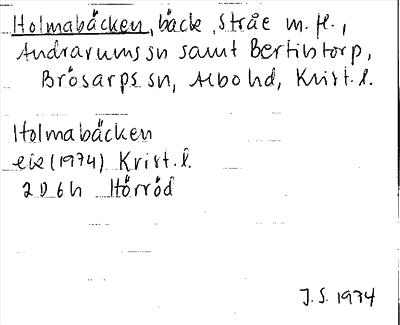 Holmabäcken, bäck, Stråe m.fl.,
Andrarums sn samt Bertilstorp,
Brösarps sn, Albo hd, Krist.l.
Holmabäcken
ek (1974) Krist.l.
2D6h Hörröd
J.S. 1974